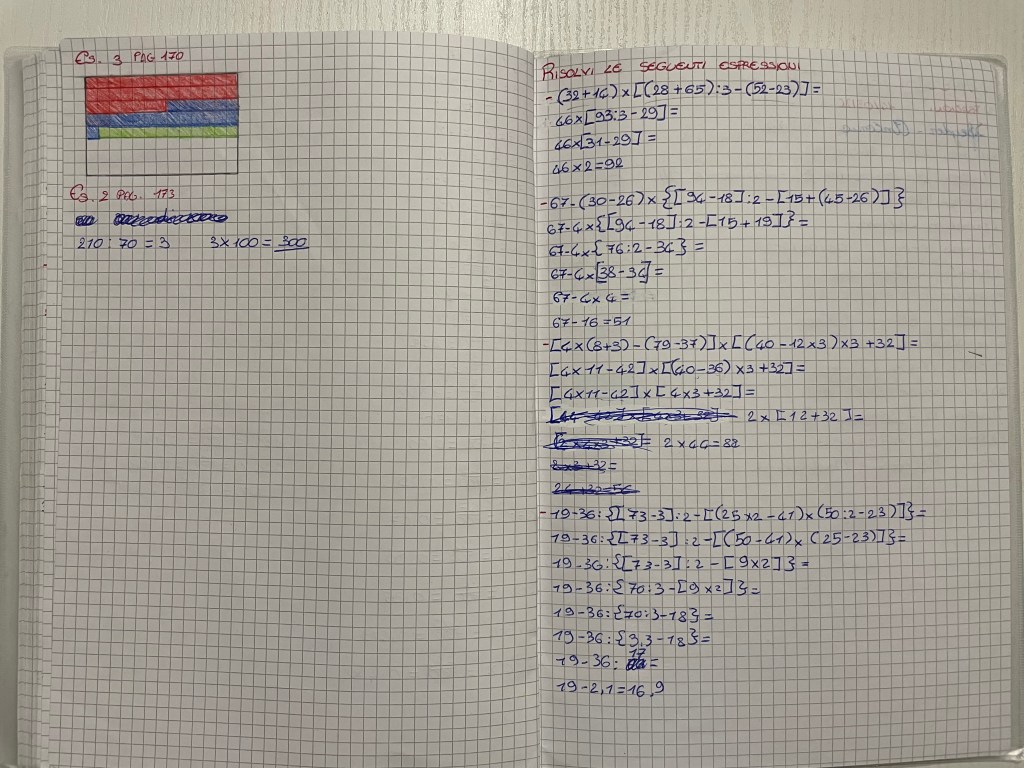 Es. 3 PAG 170
Es. 2 PAG. 173
210 : 70 = 3 3 x 100 = 300
RISOLVI LE SEGUENTI ESPRESSIONI
- (32+14) x [(28+65):3-(52-23)] =
46x[93:3-29] =
46x[31-29] =
46 x 2 = 92
- 67-(30-26) x {[94-18]:2-[15+(45-26)]}
67-4x{[94-18]:2-[15+19]} =
67-4x{76:2-34} =
67-4x[38-34] =
67-4x4 =
67-16=51
- [4x(8+3)-(79-37)]x[(40-12x3)x3+32] =
[4x11-42]x[(40-36)x3+32] =
[4x11-42]x[4x3+32] =
2 x [12+32] =
2 x 44 = 88
- 19-36:{[73-3]:2-[(25x2-41)x(50:2-23)]} =
19-36:{[73-3]:2-[(50-41)x(25-23)]} =
19-36:{[73-3]:2-[9x2]} =
19-36:{70:3-[9x2]} =
19-36:{70:3-18} =
19-36:{3,3-18} =
19-36: 17 =
19-2,1=16,9